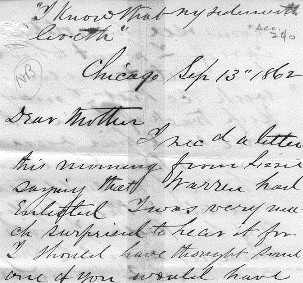 "I Know that my redeemer
liveth"
Acc.
240
WB
Chicago Sep 13" 1862
Dear Mother
I rec d a letter
this morning from Lissie
saying that Warren had
Enlisted I was very mu-
ch surprised to hear it for
I should have thought some
one of you would have